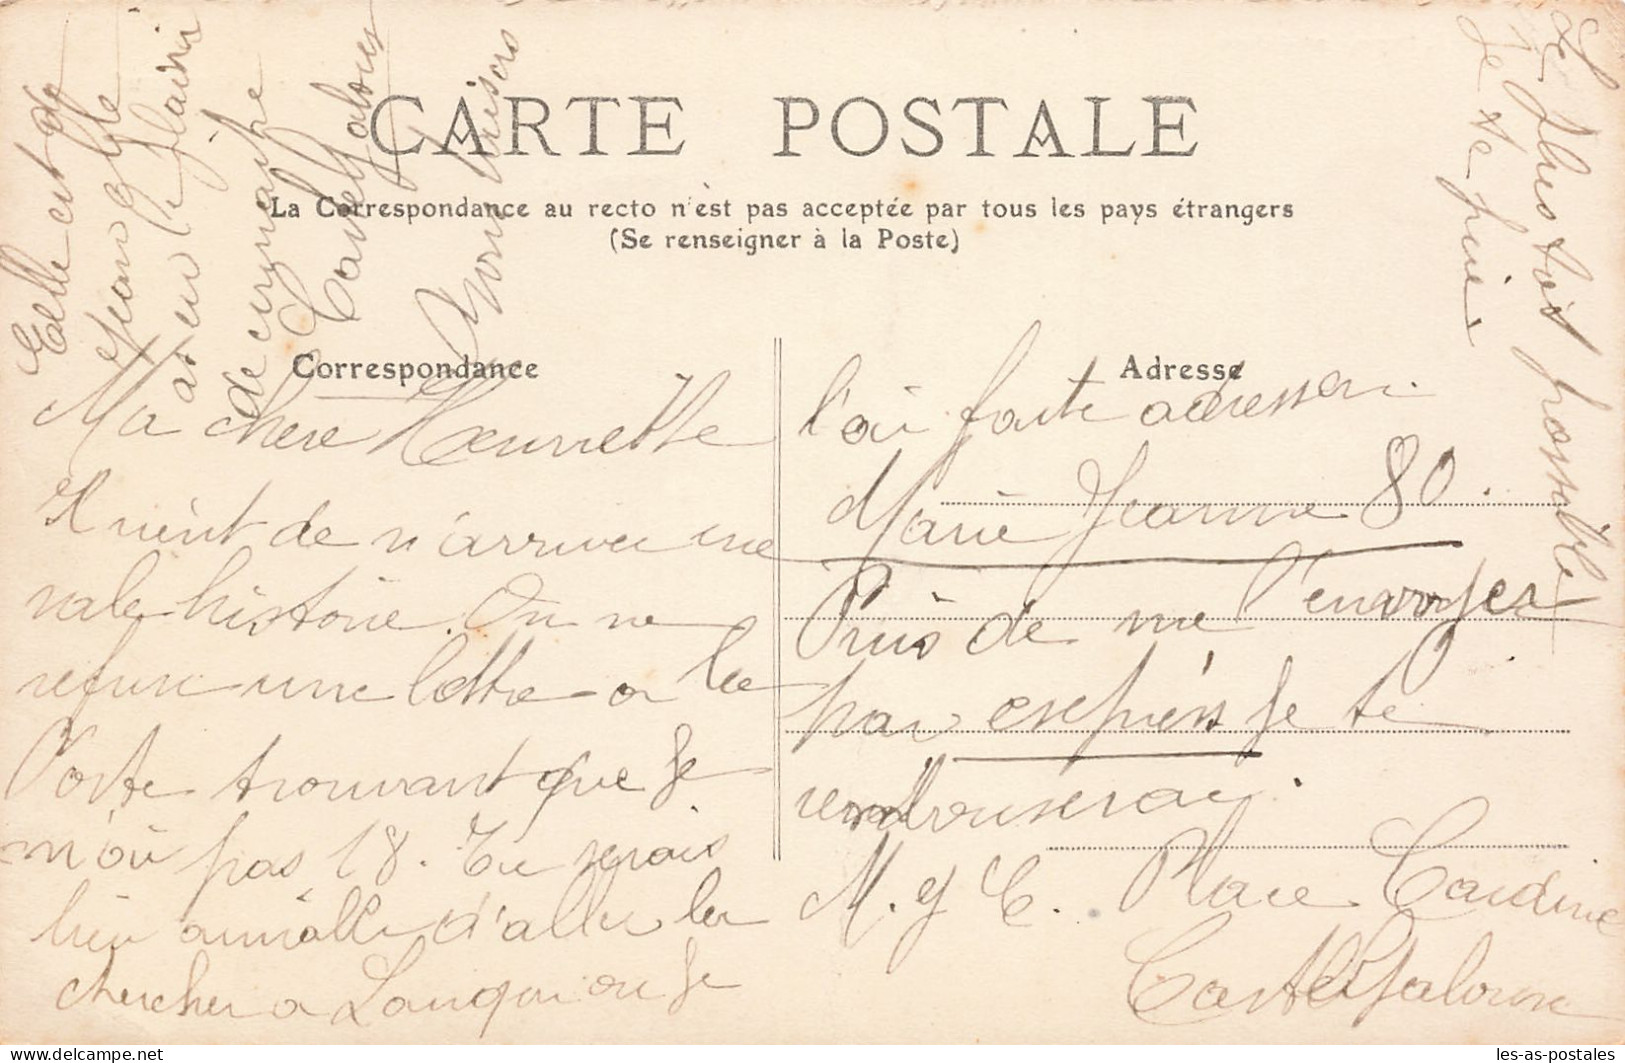 CARTE POSTALE
La Correspondance au recto n'est pas acceptée par tous les pays étrangers
(Se renseigner à la Poste)
Correspondance
Adresse
Ma chère Henriette
Il vient de n'arriver une
sale histoire. On me
refuse une lettre a la
Poste trouvant que je
n'ai pas 18. Tu serais
bien aimable d'aller la
chercher a Langon ou je
l'ai faite adresser.
Marie Jeanne 80.
Prie de me l'envoyer
par exprès je te
rembourserai.
M. J C. Place Cardine
Casteljaloux
Le plus tôt possible
Je te prie.
Elle est de
mon
as eu le plaisir
de connaitre
Casteljaloux
bons baisers
les-as-postales.com